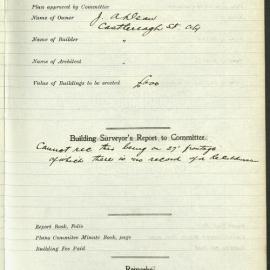 Plan approved by Committee
Name of Owner J. A. Dean
Castlereagh St City
Name of Builder "
Name of Architect "
Value of Buildings to be erected
Building Surveyor's Report to Committee.
Cannot rec this being on 27' frontage
of which there is no record of a
Report Book, Folio
Plans Committee Minute Book, page
Building Fee Paid
Remarks